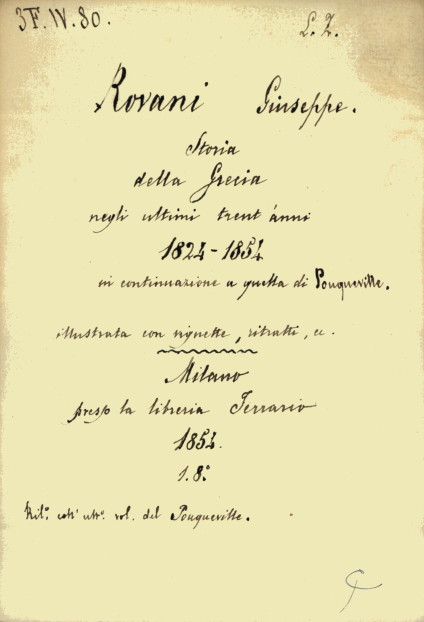 3F. IV. 80.
L. Z.
Rovani Giuseppe.
Storia
della Grecia
negli ultimi trent'anni
1824-1854
in continuazione a quella di Pouqueville.
illustrata con vignette, ritratti, ec.
Milano
presso la libreria Ferrario
1854.
1. 8.°
Ril.° coll' ult.° vol. del Pouqueville.